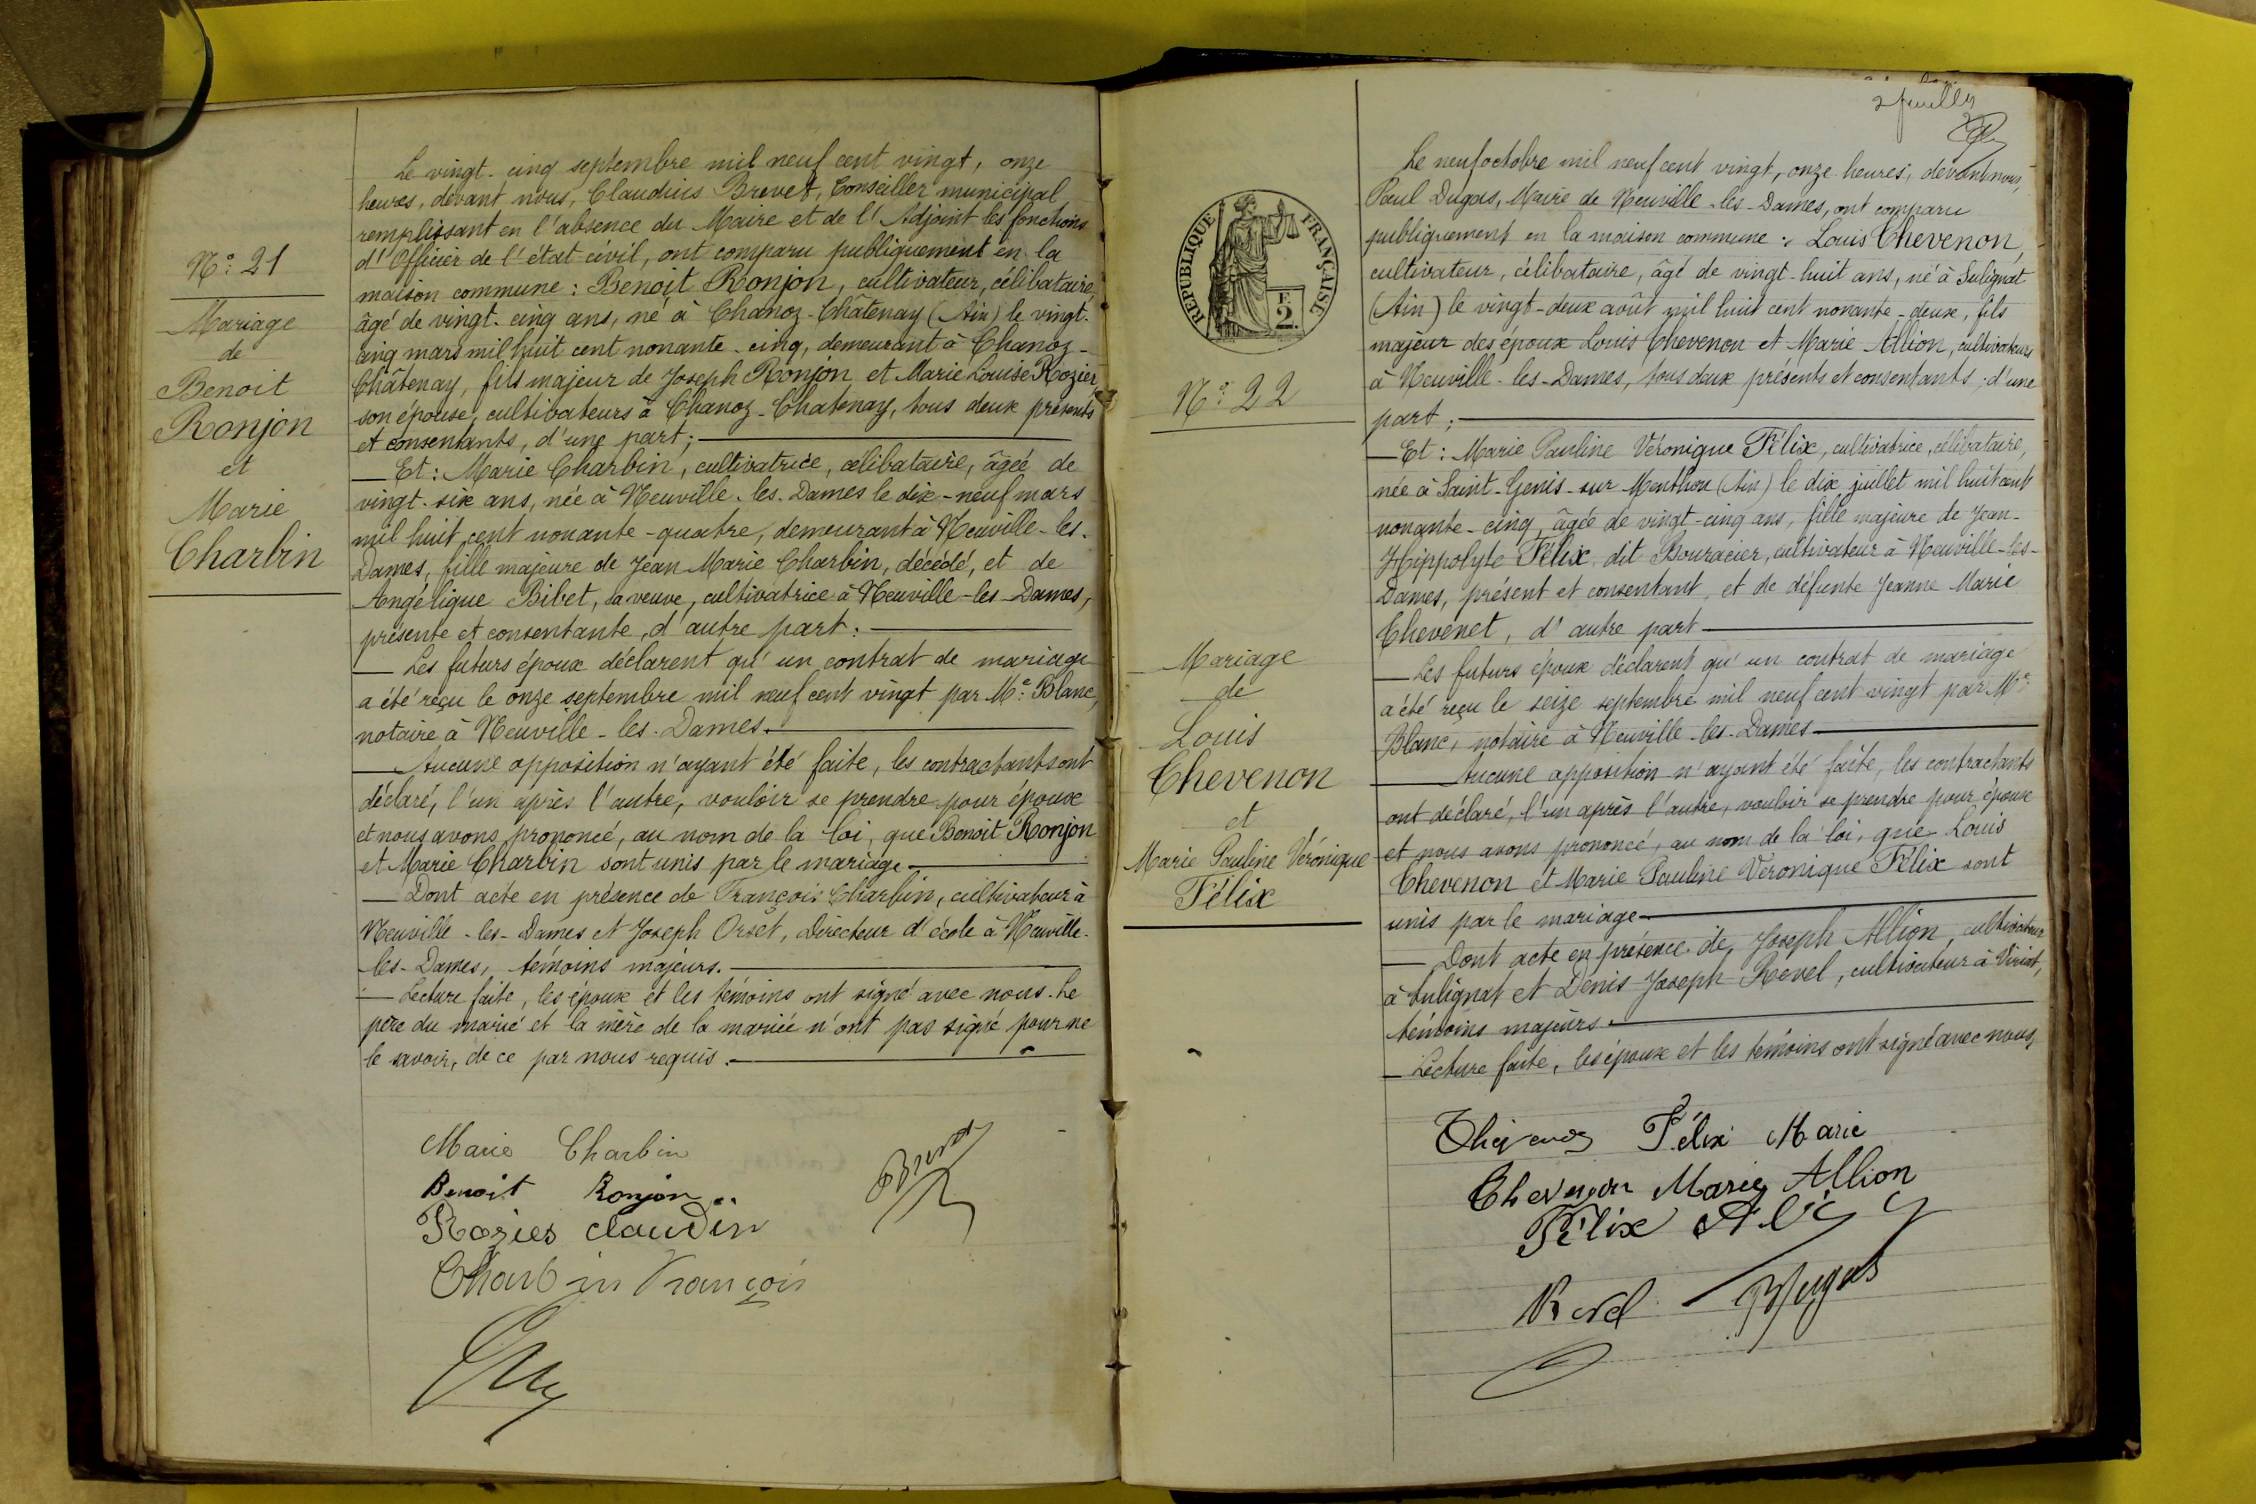 N° 21
Mariage
de
Benoit
Ronjon
et
Marie
Charbin
Le vingt-cinq septembre mil neuf cent vingt, onze
heures, devant nous, Claudius Brevet, Conseiller municipal
remplissant en l'absence du Maire et de l'Adjoint les fonctions
d'Officier de l'état-civil, ont comparu publiquement en la
maison commune : Benoit Ronjon, cultivateur, célibataire,
âgé de vingt-cinq ans, né à Chanoz-Châtenay (Ain) le vingt-
cinq mars mil huit cent nonante-cinq, demeurant à Chanoz-
Châtenay, fils majeur de Joseph Ronjon et Marie Louise Rozier
son épouse, cultivateurs à Chanoz-Chatenay, tous deux présents
et consentants, d'une part ;
Et : Marie Charbin, cultivatrice, célibataire, âgée de
vingt-six ans, née à Neuville-les-Dames le dix-neuf mars
mil huit cent nonante-quatre, demeurant à Neuville-les-
Dames, fille majeure de Jean Marie Charbin, décédé, et de
Angélique Bibet, sa veuve, cultivatrice à Neuville-les-Dames,
présente et consentante, d'autre part :
Les futurs époux déclarent qu'un contrat de mariage
a été reçu le onze septembre mil neuf cent vingt par Me Blanc,
notaire à Neuville-les-Dames.
Aucune opposition n'ayant été faite, les contractants ont
déclaré, l'un après l'autre, vouloir se prendre pour époux
et nous avons prononcé, au nom de la loi, que Benoit Ronjon
et Marie Charbin sont unis par le mariage
Dont acte en présence de François Charbin, cultivateur à
Neuville-les-Dames et Joseph Orset, Directeur d'école à Neuville-
les-Dames, témoins majeurs.
Lecture faite, les époux et les témoins ont signé avec nous. Le
père du marié et la mère de la mariée n'ont pas signé pour ne
le savoir, de ce par nous requis.
Marie Charbin
Benoit Ronjon
Brevet
Rozier claudin
Charbin François
2 feuilles
REPUBLIQUE FRANÇAISE
F.
2.
N° 22
Mariage
de
Louis
Chevenon
et
Marie Pauline Véronique
Félix
Le neuf octobre mil neuf cent vingt, onze heures, devant nous,
Paul Dugas, Maire de Neuville-les-Dames, ont comparu
publiquement en la maison commune : Louis Chevenon,
cultivateur, célibataire, âgé de vingt-huit ans, né à Sulignat
(Ain) le vingt-deux août mil huit cent nonante-deux, fils
majeur des époux Louis Chevenon et Marie Allion, cultivateurs
à Neuville-les-Dames, tous deux présents et consentants, d'une
part ;
Et : Marie Pauline Véronique Félix, cultivatrice, célibataire,
née à Saint-Genis-sur-Menthon (Ain) le dix juillet mil huit cent
nonante-cinq, âgée de vingt-cinq ans, fille majeure de Jean-
Hippolyte Félix dit Bouracier, cultivateur à Neuville-les-
Dames, présent et consentant, et de défunte Jeanne Marie
Chevenet, d'autre part
Les futurs époux déclarent qu'un contrat de mariage
a été reçu le seize septembre mil neuf cent vingt par Me
Blanc, notaire à Neuville-les-Dames
Aucune opposition n'ayant été faite, les contractants
ont déclaré, l'un après l'autre, vouloir se prendre pour époux
et nous avons prononcé, au nom de la loi, que Louis
Chevenon et Marie Pauline Véronique Félix sont
unis par le mariage
Dont acte en présence de Joseph Allion, cultivateur
à Sulignat et Denis-Joseph Revel, cultivateur à Viriat,
témoins majeurs.
Lecture faite, les époux et les témoins ont signé avec nous,
Chevenon Félix Marie
Chevenon Marie Allion
Félix
Revel Dugas